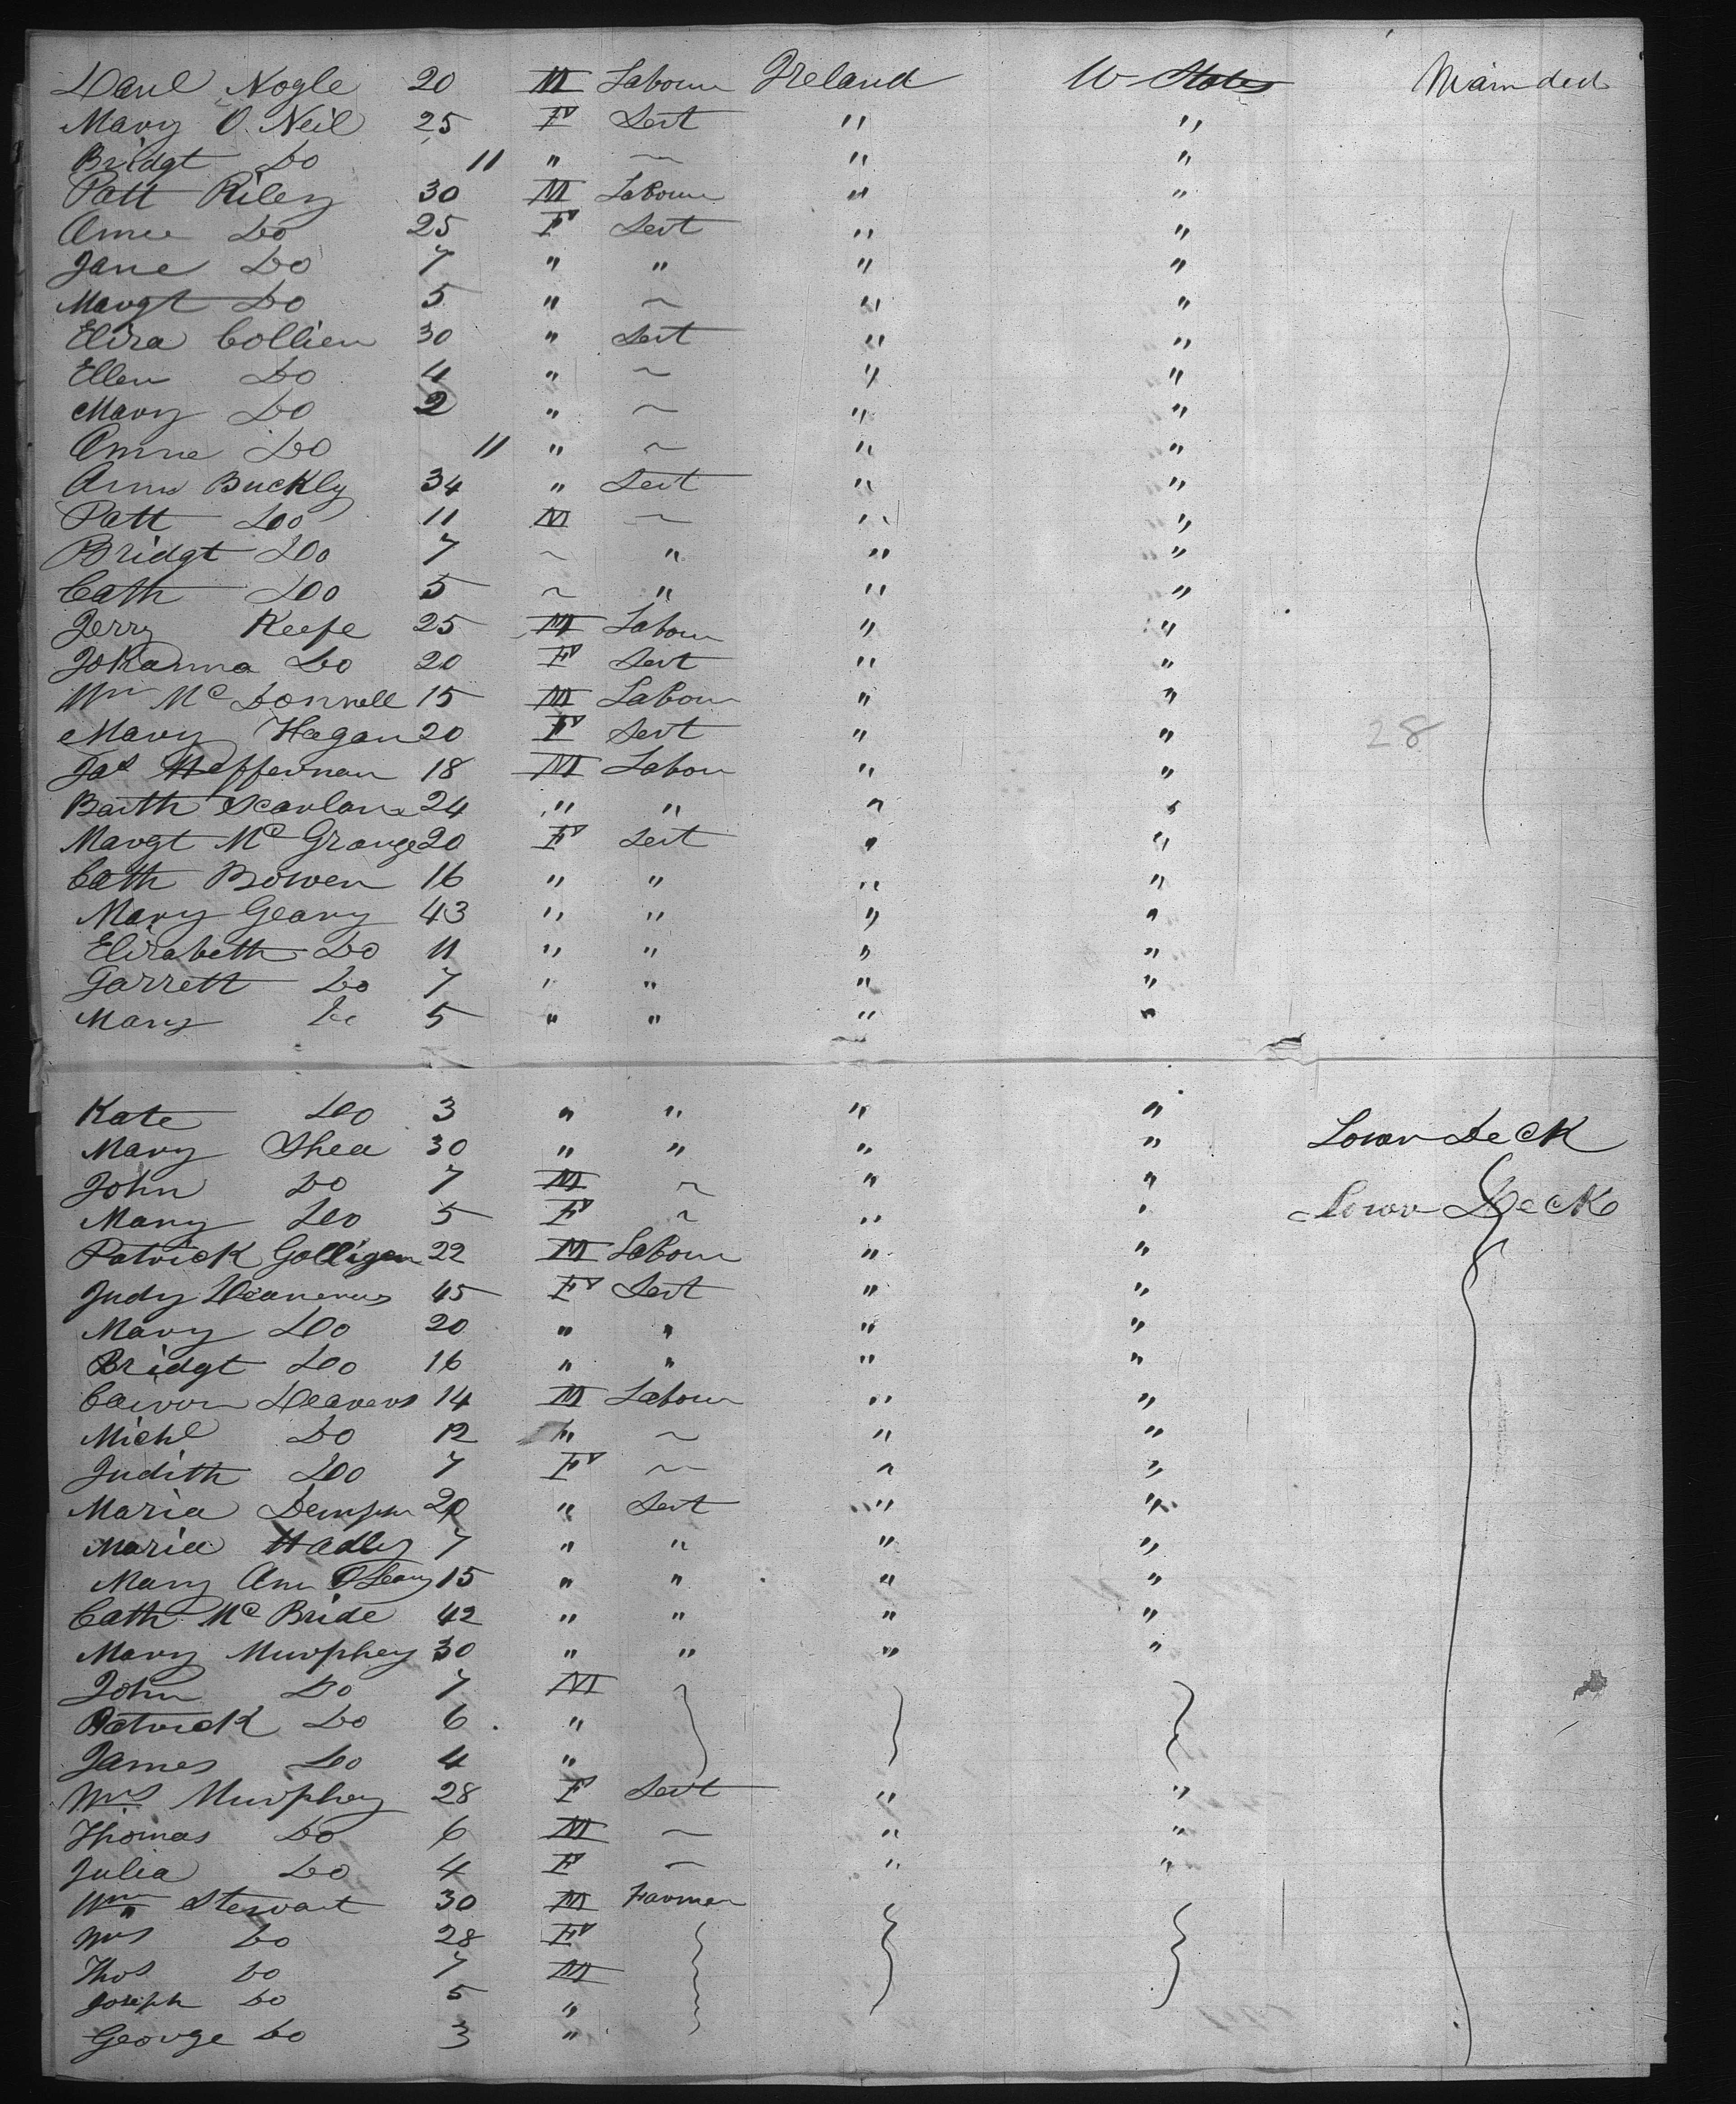 Danl Nogle 20 M Labour Ireland U States Main deck
Mary O. Neil 25 F Sert " "
Bridgt Do 11 " ~ " "
Patt Riley 30 M Labour " "
Anne Do 25 F Sert " "
Jane Do 7 " " " "
Margt Do 5 " ~ " "
Eliza Collien 30 " Sert " "
Ellen Do 4 " ~ " "
Mary Do 2 " ~ " "
Anne Do 11 " ~ " "
Ann Buckly 34 " Sert " "
Patt Do 11 M ~ " "
Bridgt Do 7 ~ " " "
Cath Do 5 ~ " " "
Jerry Keefe 25 M Labour " "
Johanna Do 20 F Sert " "
Wm Mc Donnell 15 M Labour " "
Mary Hagan 20 F Sert " " 28
Jas Heffernan 18 M Labour " "
Barth Scanlan 24 " " " "
Margt Mc Grange 20 F Sert " "
Cath Bowen 16 " " " "
Mary Geary 43 " " " "
Elizabeth Do 11 " " " "
Garrett Do 7 " " " "
Mary Do 5 " " " "
Kate Do 3 " " " "
Mary Shea 30 " " " " Lower Deck
John Do 7 M ~ " "
Mary Do 5 F ~ " " Lower Deck
Patrick Golligan 22 M Labour " "
Judy 45 F Sert " "
Mary Do 20 " " " "
Bridgt Do 16 " " " "
Deavers 14 M Labour " "
Michl Do 12 " ~ " "
Judith Do 7 F ~ " "
Maria 20 " Sert " "
Maria Hadley 7 " " " "
Mary Ann O'Leary 15 " " " "
Cath Mc Bride 42 " " " "
Mary Murphey 30 " " " "
John Do 7 M
Patrick Do 6 "
James Do 4 "
Mrs Murphey 28 F Sert " "
Thomas Do 6 M ~ " "
Julia Do 4 F ~ " "
Wm Stewart 30 M Farmer
Mrs Do 28 F
Thos Do 7 M
Joseph Do 5 "
George Do 3 "